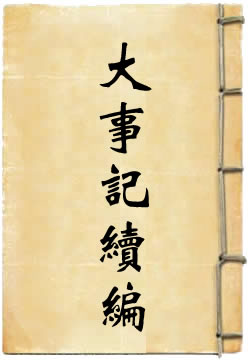 大事記續編